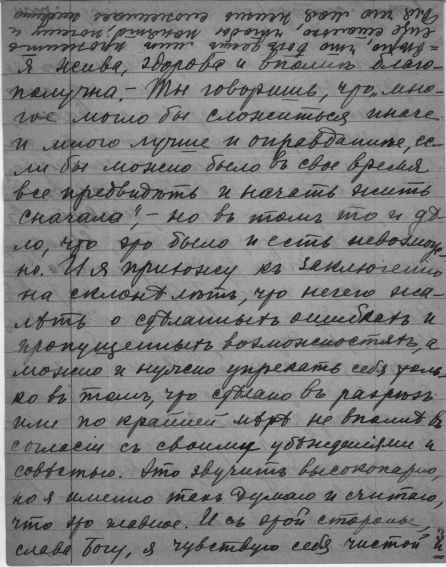 я жива, здорова и вполнѣ благо-
получна. – Ты говоришь, что „мно-
гое могло бы сложиться иначе
и много лучше и оправданнѣе, ес-
ли бы можно было въ свое время
все предвидѣть и начать жить
сначала“, – но въ томъ то и дѣ-
ло, что это было и есть невозмож-
но. И я прихожу къ заключенію
на склонѣ лѣтъ, что нечего жа-
лѣть о сдѣланныхъ ошибкахъ и
пропущенныхъ возможностяхъ, а
можно и нужно упрекать себя толь-
ко въ томъ, что сдѣлано въ разрѣзъ
или по крайней мѣрѣ не вполнѣ въ
согласіи съ своими убѣжденіями и
совѣстью. Это звучитъ высокопарно,
но я именно такъ думаю и считаю,
что это главное. И съ этой стороны,
слава Богу, я чувствую себя чистой и